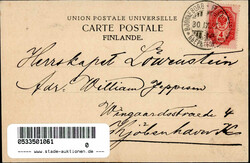 UNION POSTALE UNIVERSELLE
CARTE POSTALE
FINLANDE.
Herrskapet Löwenstein
Adr. William Jeppesen
4
Kjöbenhavn K
0533501061
0
www.stade-auktionen.de